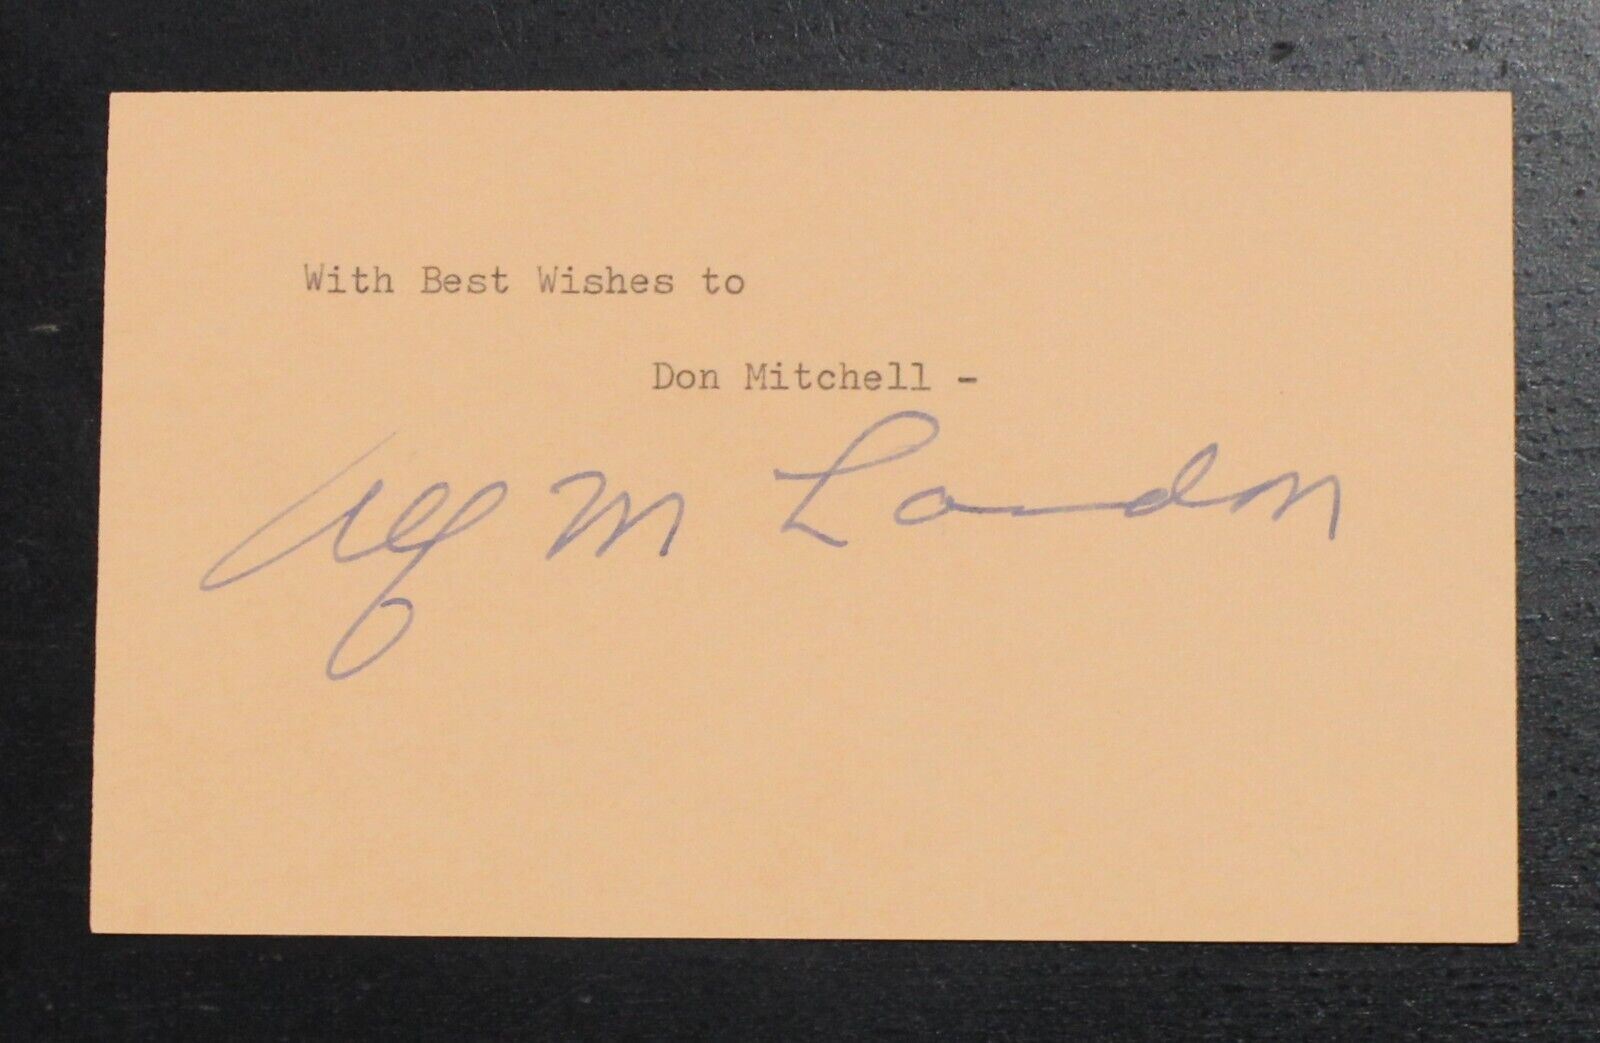 With Best Wishes to
Don Mitchell -
Alf M Landon